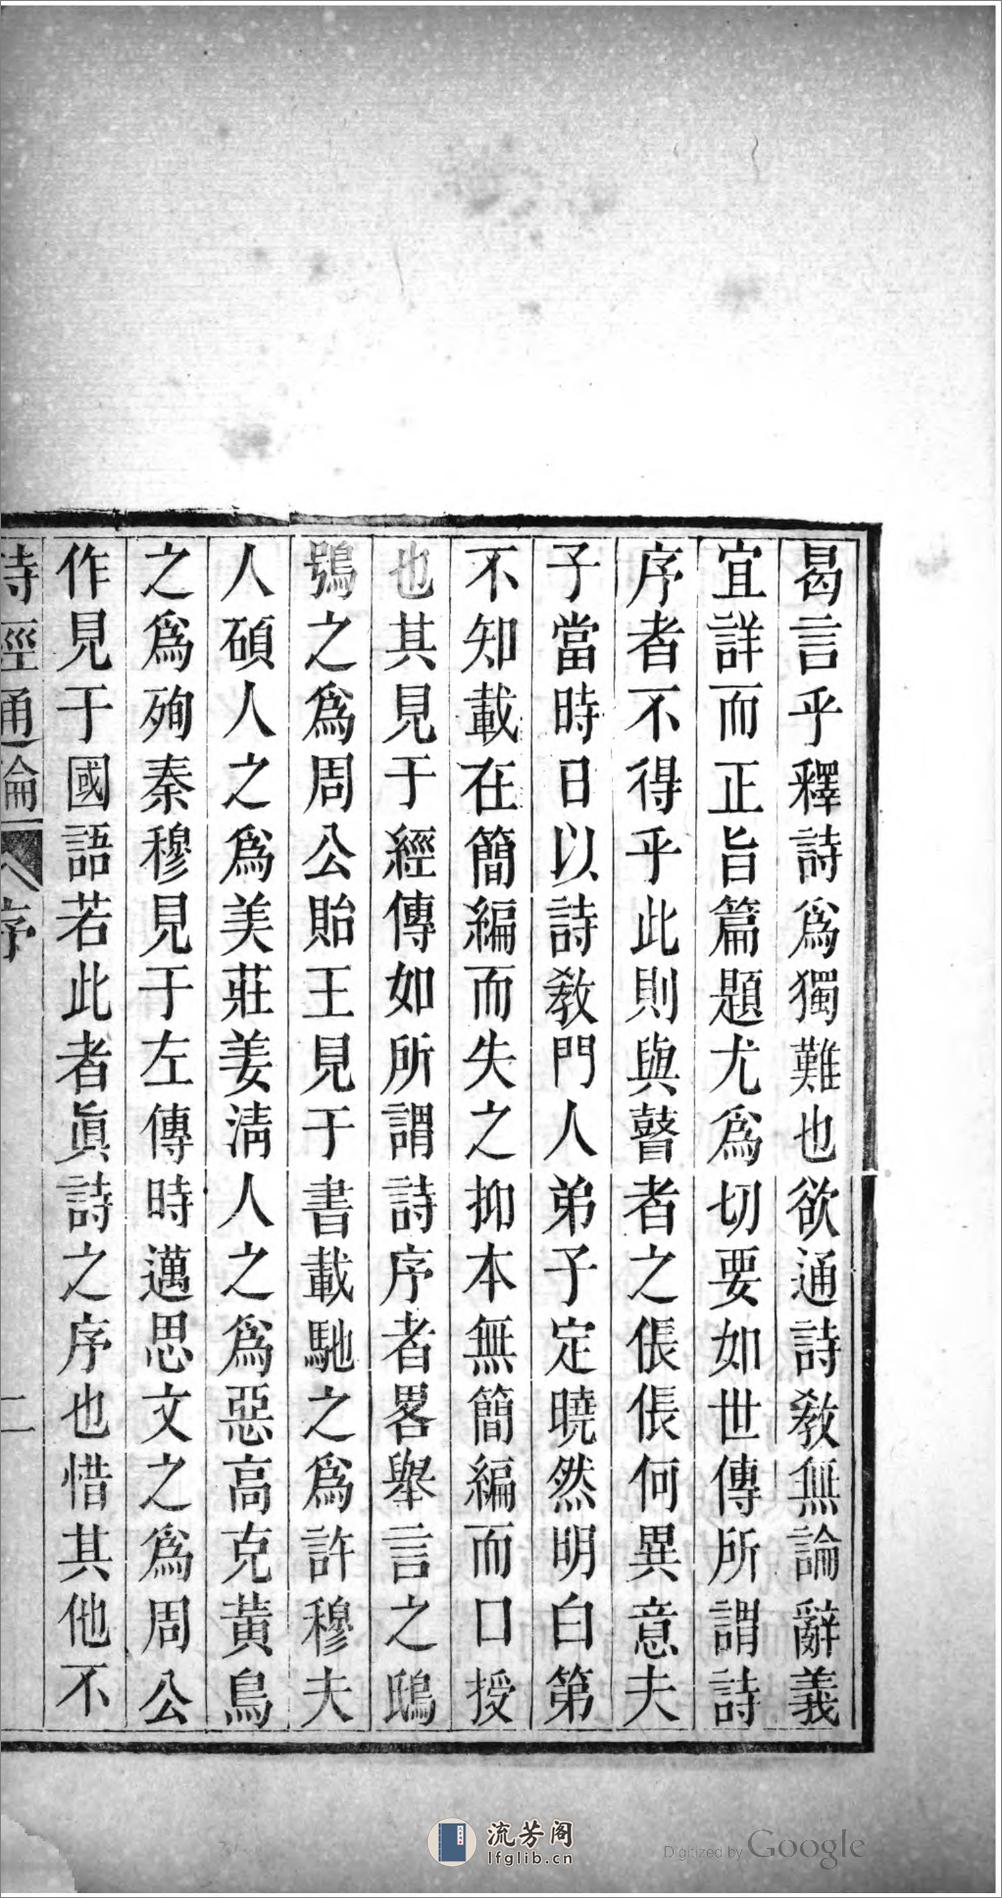 曷言乎釋詩爲獨難也欲通詩敎無論辭義
宜詳而正旨篇題尤爲切要如世傳所謂詩
序者不得乎此則與瞽者之倀倀何異意夫
子當時日以詩敎門人弟子定曉然明白第
不知載在簡編而失之抑本無簡編而口授
也其見于經傳如所謂詩序者畧舉言之鴟
鴞之爲周公貽王見于書載馳之爲許穆夫
人碩人之爲美莊姜淸人之爲惡高克黃鳥
之爲殉秦穆見于左傳時邁思文之爲周公
作見于國語若此者眞詩之序也惜其他不
詩經通論
序
二
流芳阁
lfglib.cn
Digitized by Google